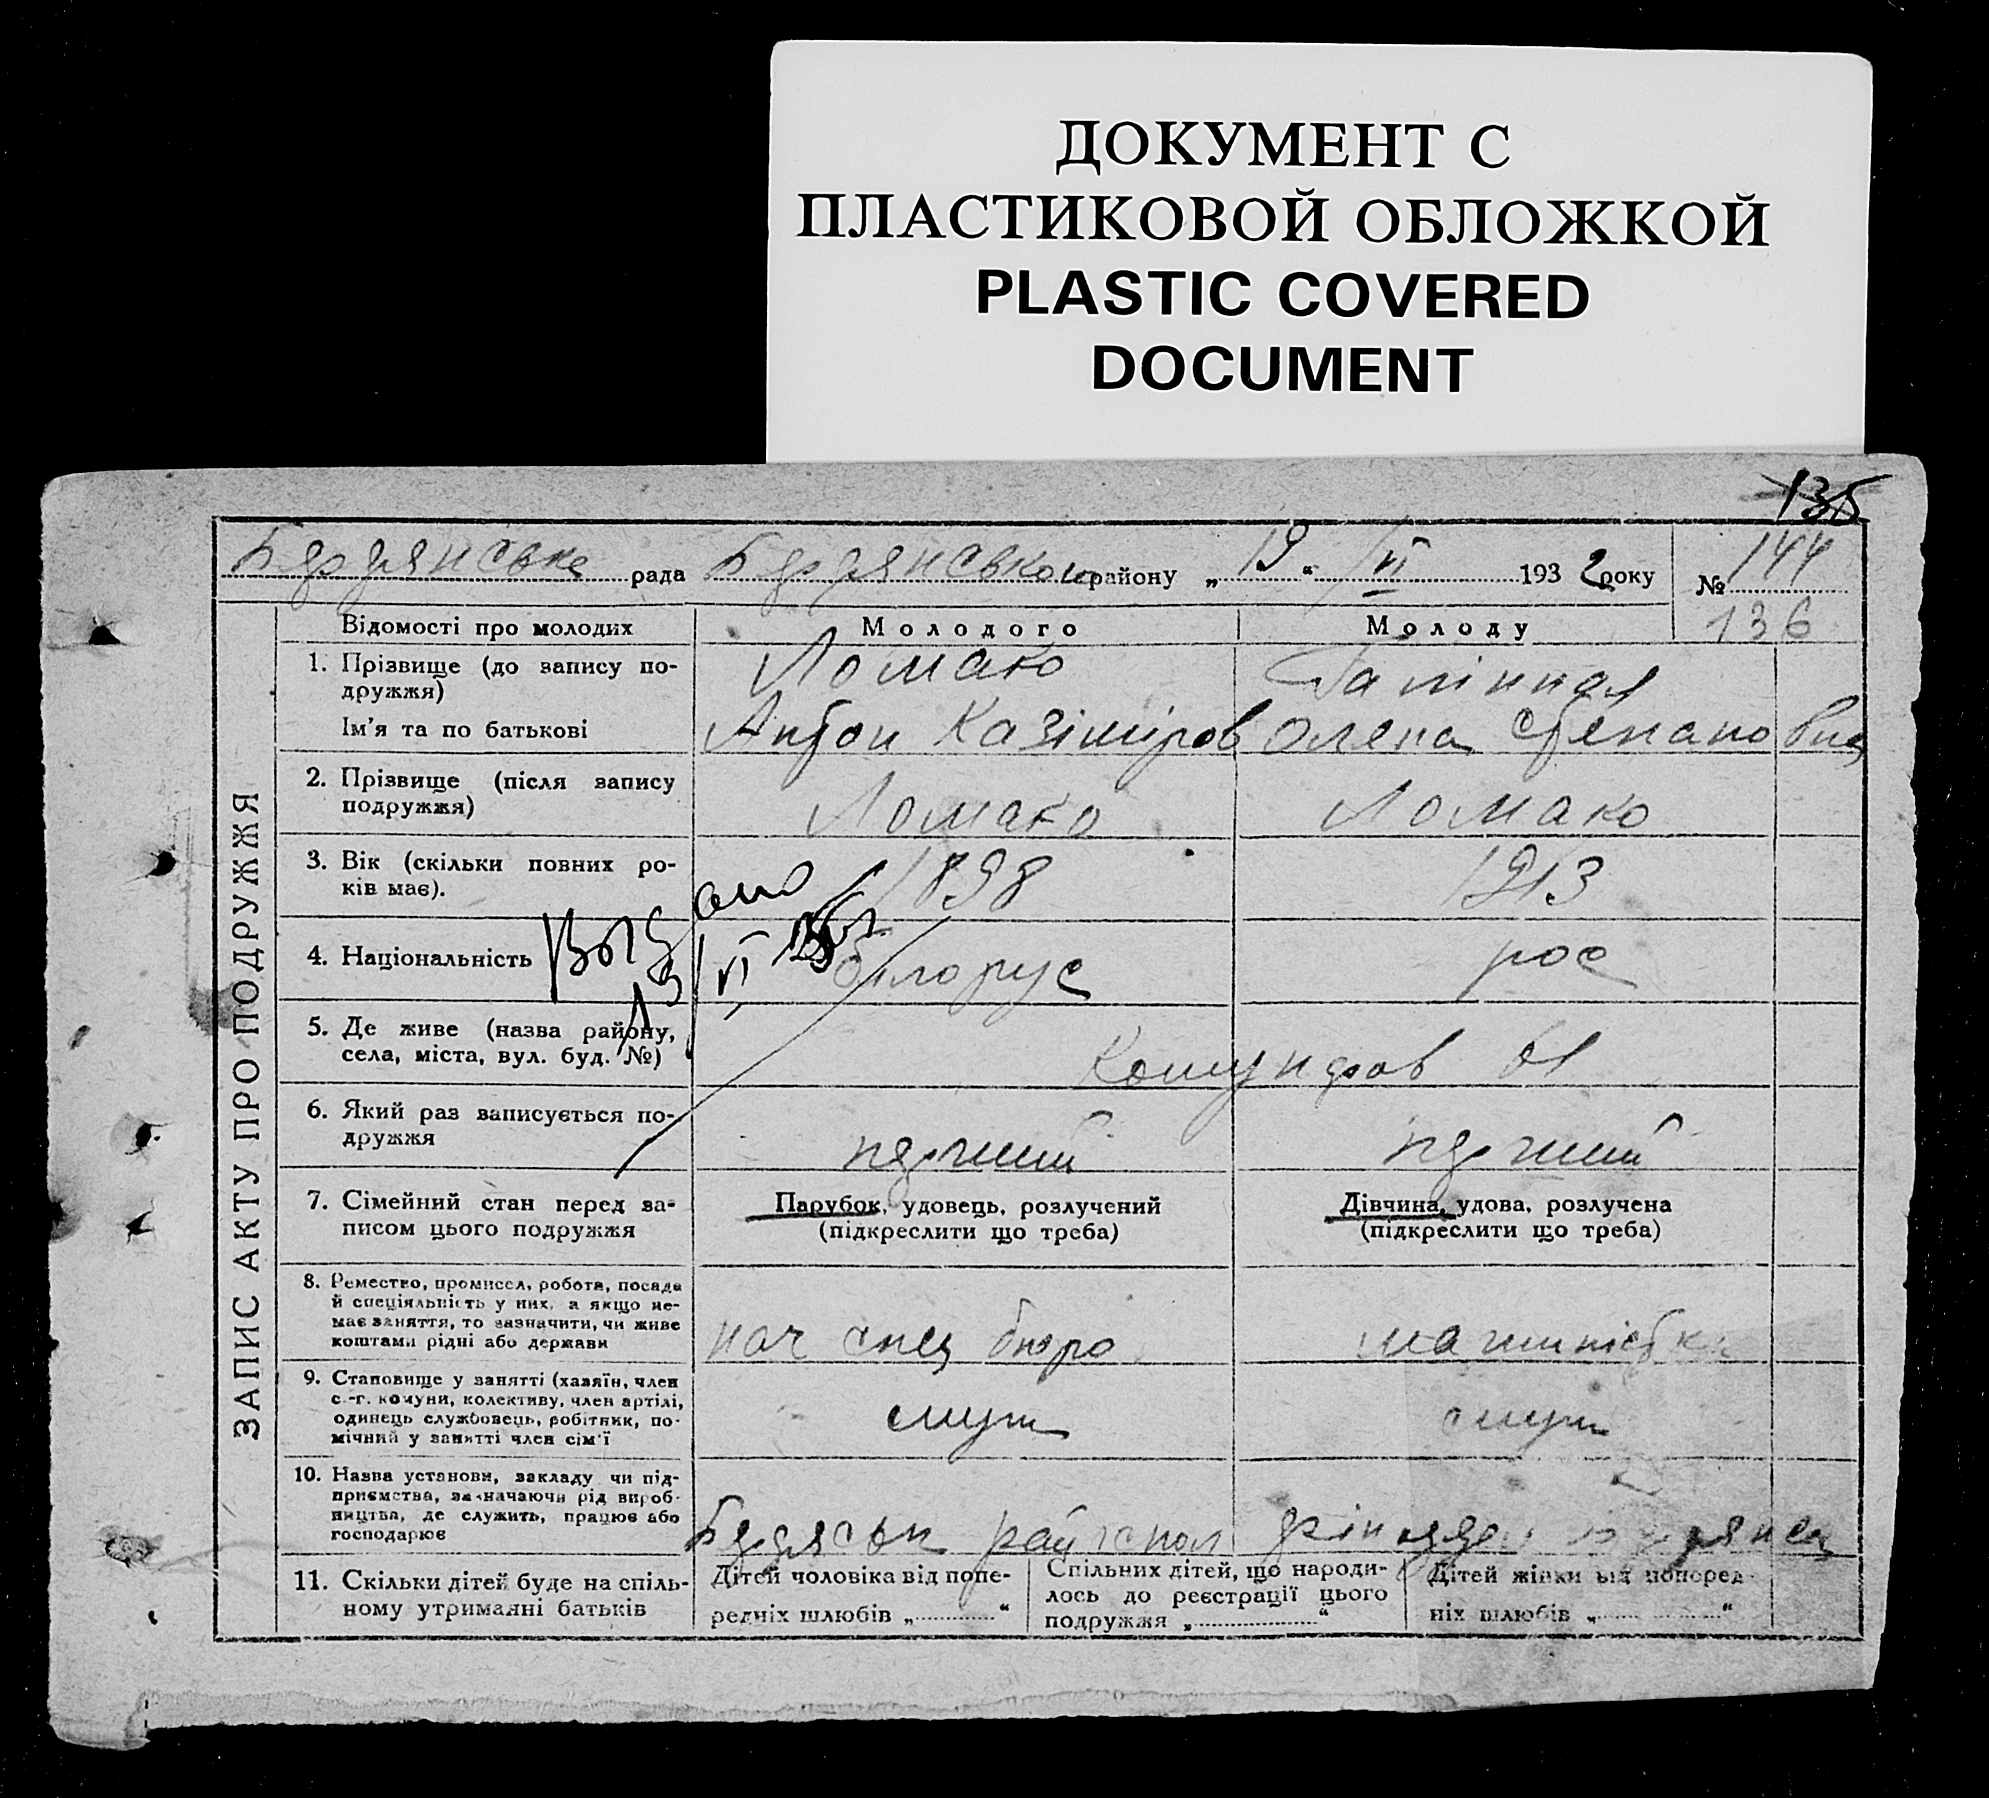 ДОКУМЕНТ С
ПЛАСТИКОВОЙ ОБЛОЖКОЙ
PLASTIC COVERED
DOCUMENT
135
Бердянське рада Бердянського району „19“ VI 1932 року № 144
136
ЗАПИС АКТУ ПРО ПОДРУЖЖЯ
Відомості про молодих Молодого Молоду
1. Прізвище (до запису по-
дружжя)
Ломако
Ім'я та по батькові Антон Казіміров Олена Степановна
2. Прізвище (після запису
подружжя)
Ломако Ломако
3. Вік (скільки повних ро-
ків має).
1898 1913
4. Національність білорус рос
5. Де живе (назва району,
села, міста, вул. буд. №)
61
6. Який раз записується по-
дружжя
перший перший
7. Сімейний стан перед за-
писом цього подружжя
Парубок, удовець, розлучений
(підкреслити що треба)
Дівчина, удова, розлучена
(підкреслити що треба)
8. Ремество, промисел, робота, посада
й спеціяльність у них, а якщо не-
має заняття, то зазначити, чи живе
коштами рідні або держави
нач спец бюро машиністка
9. Становище у занятті (хазяїн, член
с.-г. комуни, колективу, член артілі,
одинець службовець, робітник, по-
мічний у занятті член сім'ї
служ служ
10. Назва установи, закладу чи під-
приємства, зазначаючи рід вироб-
ництва, де служить, працює або
господарює
11. Скільки дітей буде на спіль-
ному утриманні батьків
Дітей чоловіка від попе-
редніх шлюбів „ “
Спільних дітей, що народи-
лось до реєстрації цього
подружжя „ “
Дітей жінки від поперед-
ніх шлюбів „ “